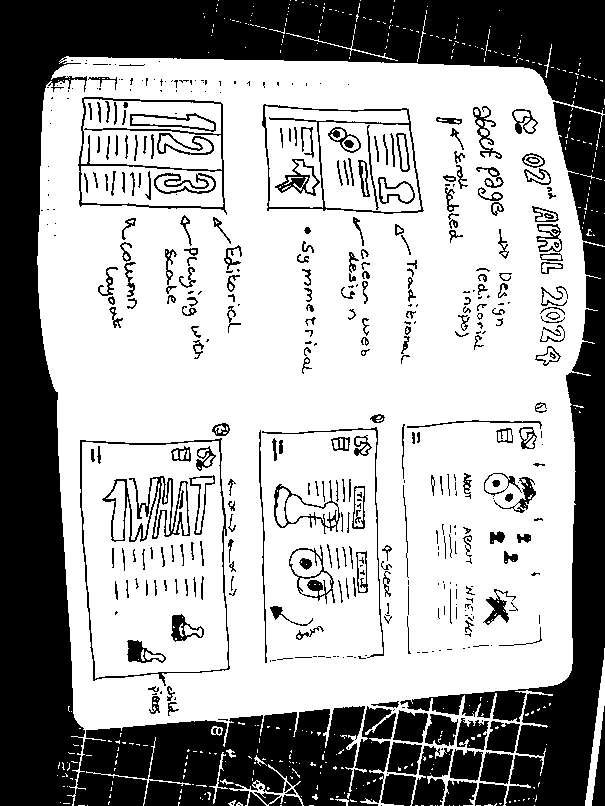 02nd APRIL 2024
about page → Design
(editorial
inspo)
Scroll
Disabled
Traditional
clean web
design
• Symmetrical
1
2
3
Editorial
Playing with
scale
column
layout
ABOUT
ABOUT
INTERACT
TITLE
TITLE
1 WHAT
child
pieces
8